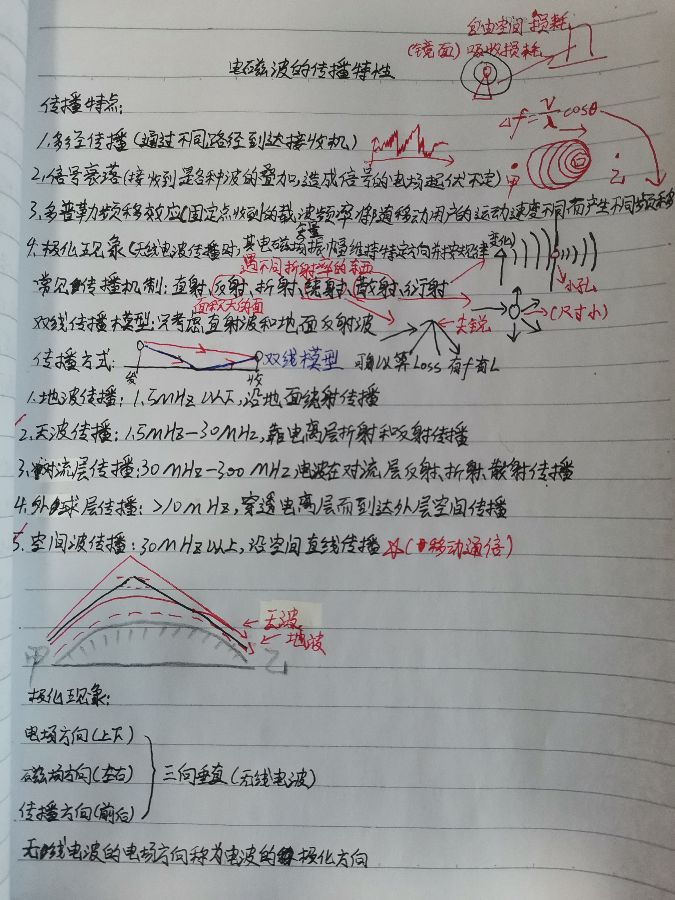 自由空间损耗
(镜面) 吸收损耗
电磁波的传播特性
传播特点:
△f=v/λ cosθ
1.多径传播(通过不同路径到达接收机)
2.信号衰落(接收到是各种波的叠加,造成信号的电场起伏不定)
甲 乙
3.多普勒频移效应(固定点收到的载波频率将随移动用户的运动速度不同而产生不同频移
矢量
4.极化现象(无线电波传播时,其电磁场振幅维持特定方向并按规律变化)
遇不同折射率的东西
常见传播机制:直射,反射、折射、绕射、散射、衍射
小孔
面积大的面
(尺寸小)
双线传播模型:只考虑直射波和地面反射波
尖锐
传播方式: 双线模型 可以算Loss 有f有L
发 收
1.地波传播:1.5MHz以下,沿地面绕射传播
2.天波传播:1.5MHz-30MHz,靠电离层折射和反射传播
3.对流层传播:30MHz-300MHz电波在对流层反射、折射、散射传播
4.外球层传播:>10MHz,穿透电离层而到达外层空间传播
5.空间波传播:30MHz以上,沿空间直线传播☆(移动通信)
天波
地波
甲 乙
极化现象:
电场方向(上下)
磁场方向(左右) 三向垂直(无线电波)
传播方向(前后)
无线电波的电场方向称为电波的极化方向